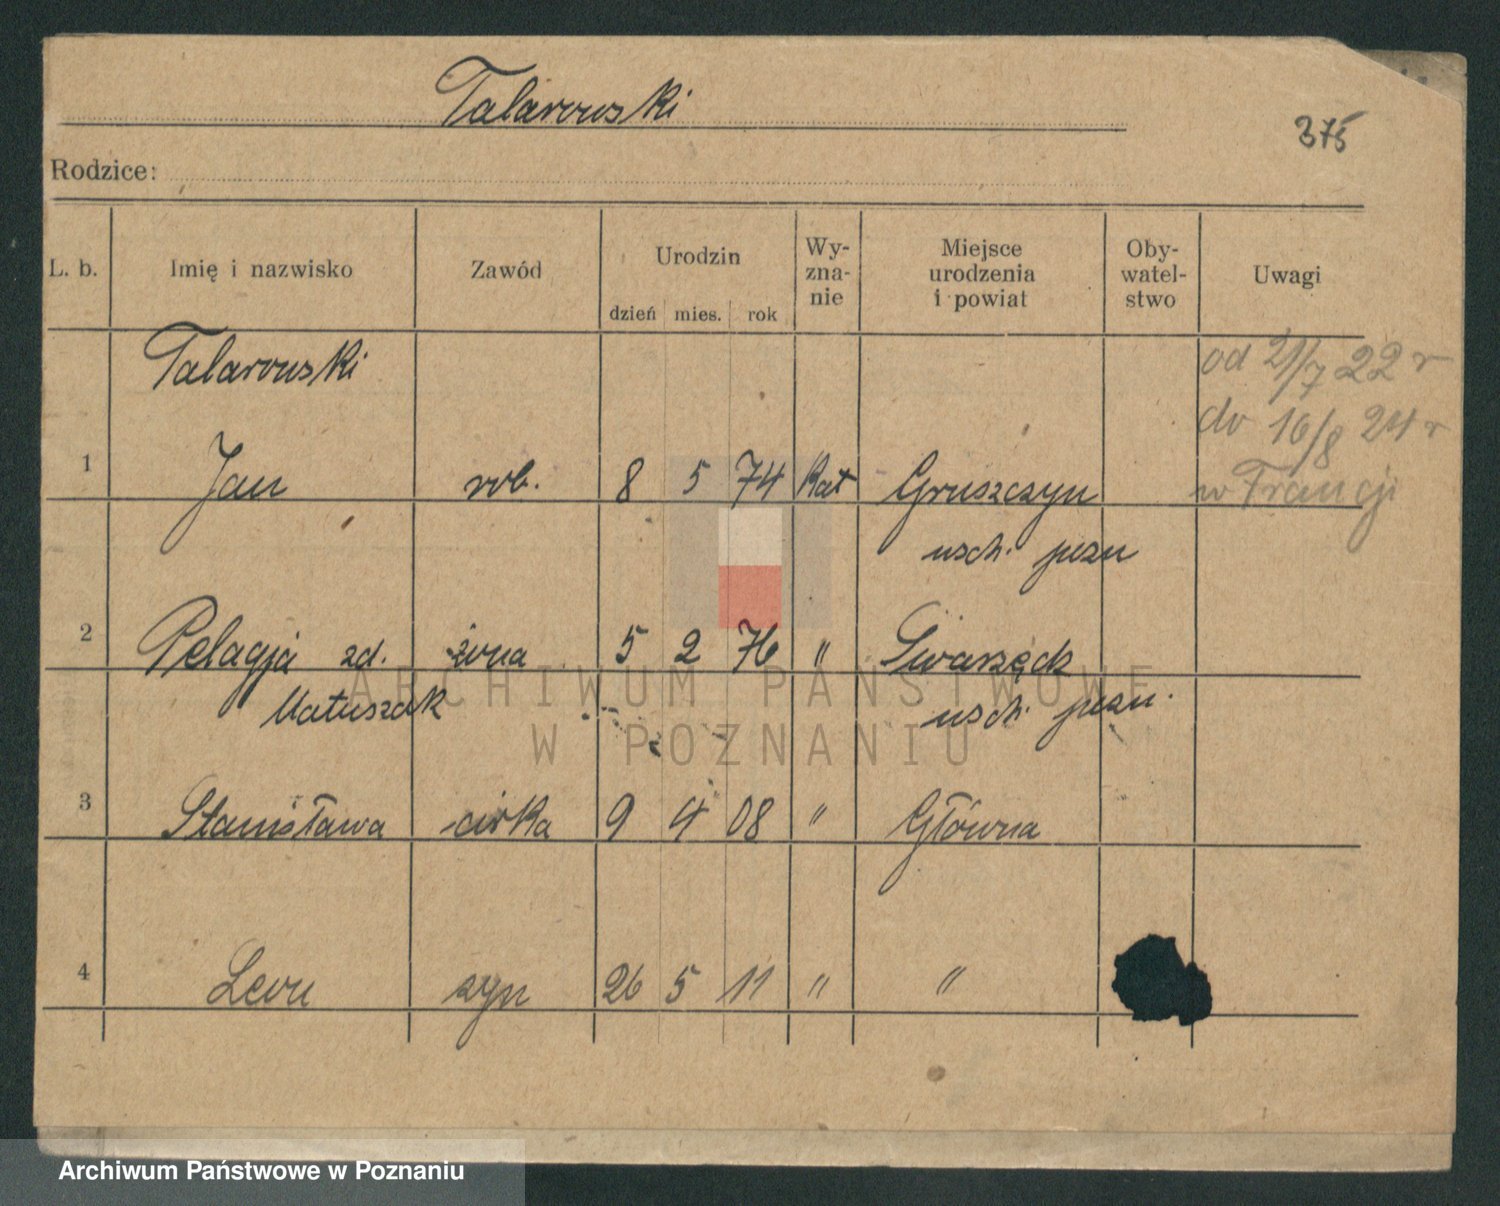 Talarowski
375
Rodzice:
L. b. Imię i nazwisko Zawód Urodzin dzień mies. rok Wy-zna-nie Miejsce urodzenia i powiat Oby-watel-stwo Uwagi
Talarowski od 21/7 22 r
do 16/8 24 r
1 Jan rob. 8 5 74 Kat Gruszczyn w Francji
wsch. pozn
2 Pelagja zd. żona 5 2 76 " Swarzędz
Matuszak wsch. pozn.
ARCHIWUM PAŃSTWOWE
W POZNANIU
3 Stanisława córka 9 4 08 " Główna
4 Leon syn 26 5 11 " "
Archiwum Państwowe w Poznaniu